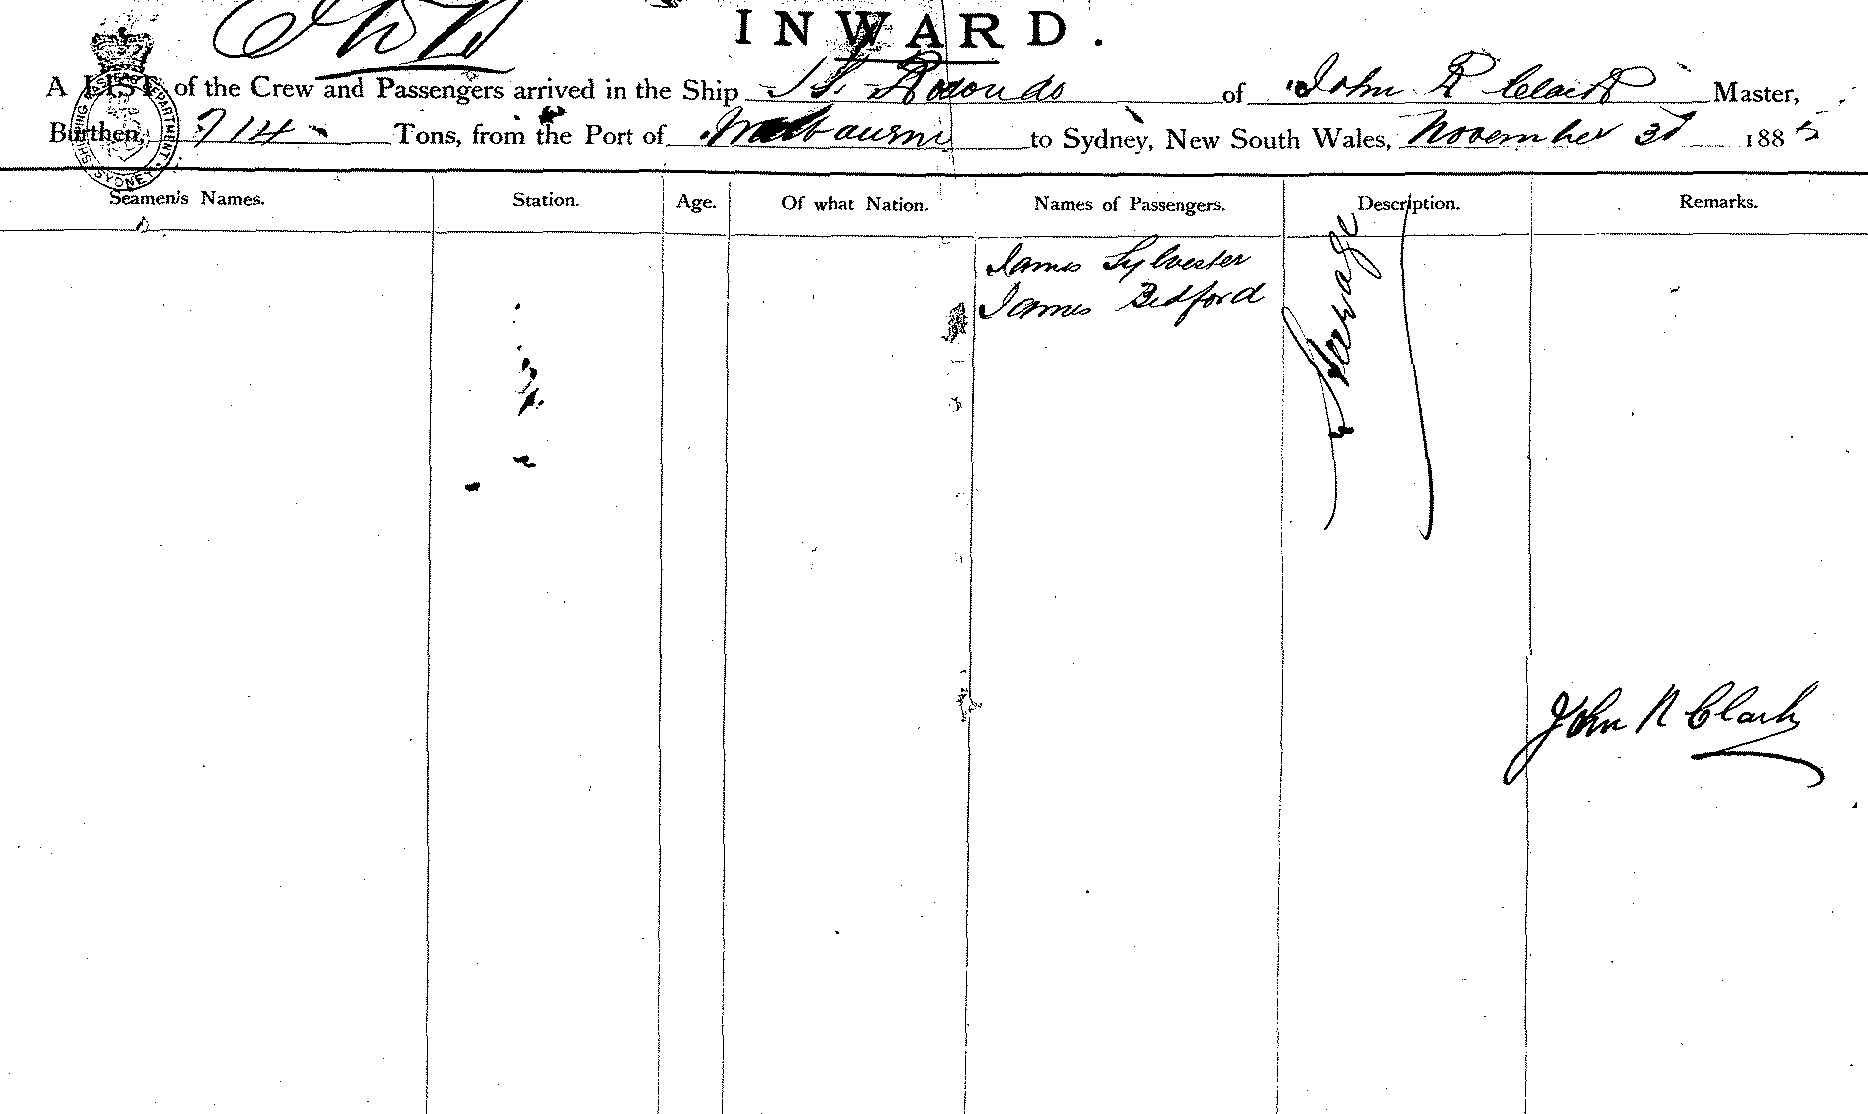 INWARD.
A LIST of the Crew and Passengers arrived in the Ship S.S. Rodondo of John R Clark Master,
Burthen, 714 Tons, from the Port of Melbourne to Sydney, New South Wales, November 3d 1885
SHIPPING DEPARTMENT SYDNEY
Seamen's Names. Station. Age. Of what Nation. Names of Passengers. Description. Remarks.
James Sylvester
James Bedford
Steerage
John R Clark